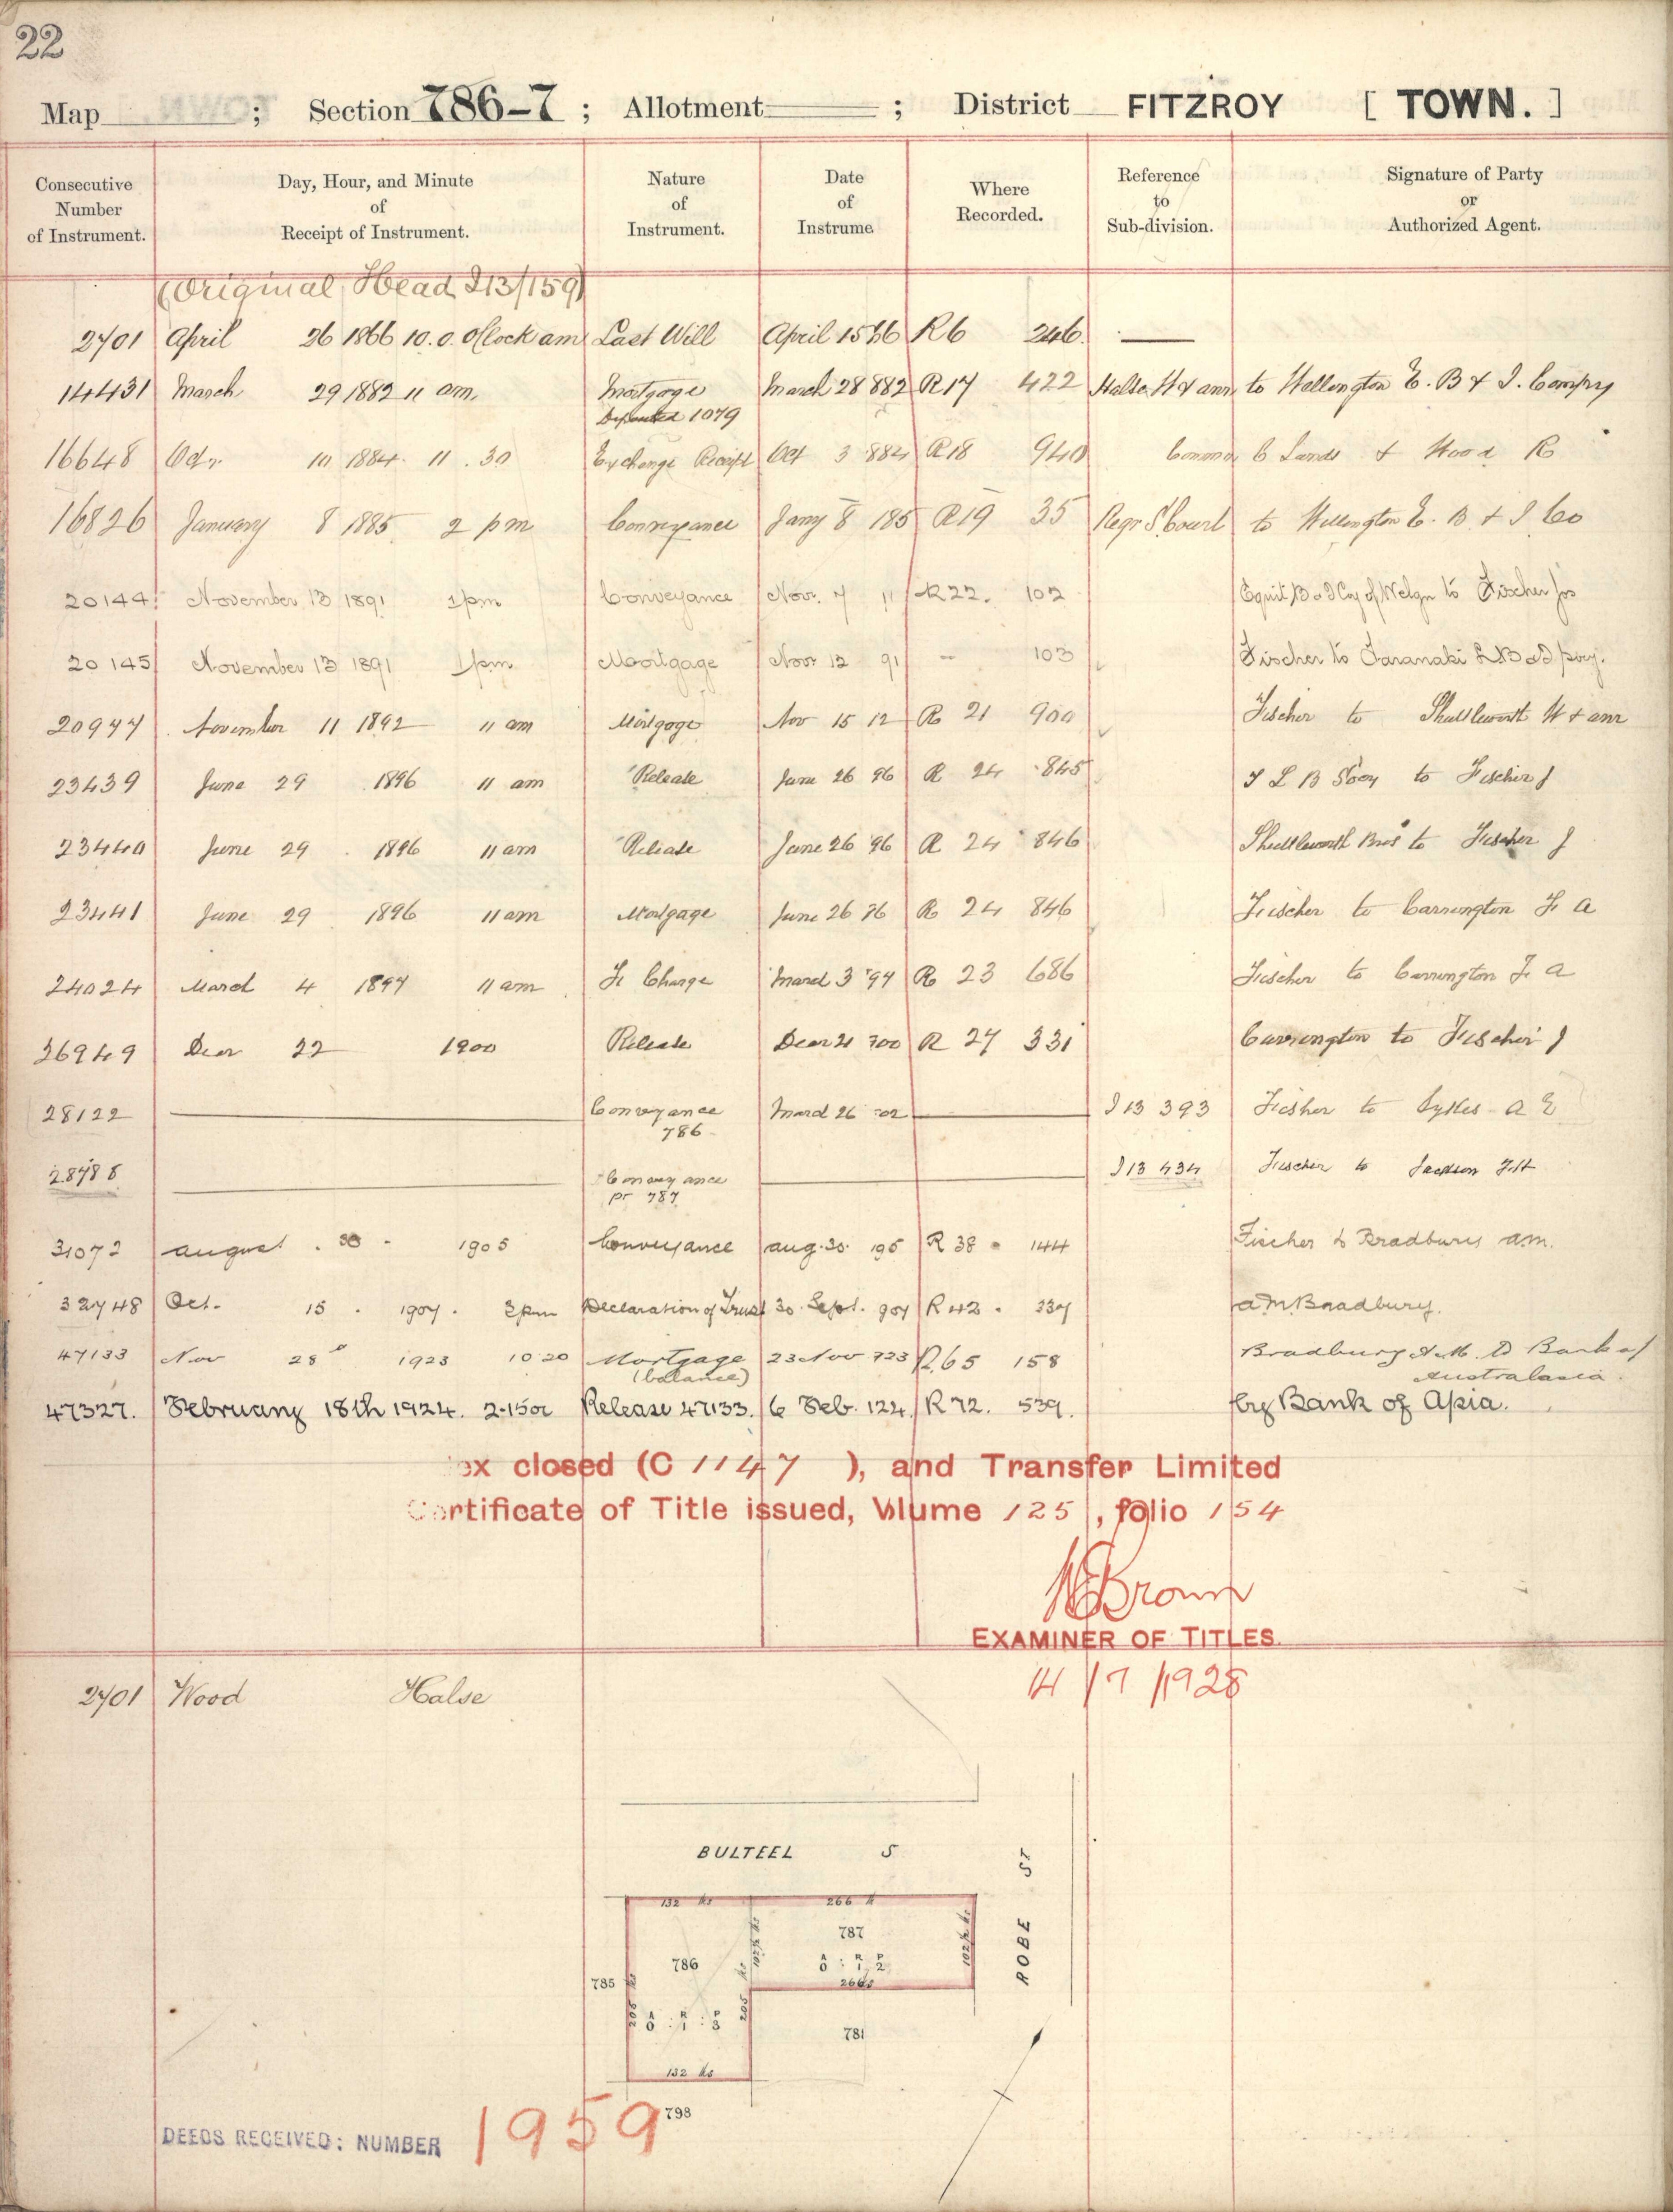 22
Map ; Section 786-7 ; Allotment ; District FITZROY [ TOWN. ]
Consecutive Number of Instrument.
Day, Hour, and Minute of Receipt of Instrument.
Nature of Instrument.
Date of Instrume
Where Recorded.
Reference to Sub-division.
Signature of Party or Authorized Agent.
(Original Head I13/159)
2701 April 26 1866 10.0. O'Clock am Last Will April 1566 R6 246.
14431 March 29 1882 11 am. Mortgage March 28 882 R17 422 Halse H & anr to Wellington E. B & I. Compny
Deposited 1079
16648 Oct. 10 1884. 11.30 Exchange Receipt Oct 3 884 R18 940 Commr C Lands & Wood R
16826 January 8 1885 2 pm Conveyance Jany 8 185 R19 35 Regr S. Court to Wellington E. B. & I Co
20144 November 13 1891 1pm Conveyance Nov. 7 11 R22. 102 Equit B & I Coy of Welgn to Fischer Jos
20145 November 13 1891 1pm Mortgage Nov. 12 91 — 103 Fischer to Taranaki L B & I
20977 November 11 1892 11 am Mortgage Nov 15 12 R 21 900 Fischer to Shuttleworth H & anr
23439 June 29 1896 11 am Release June 26 96 R 24 845 T L B Socy to Fischer J
23440 June 29 1896 11 am Release June 26 96 R 24 846 Shuttleworth Bros to Fischer J
23441 June 29 1896 11 am Mortgage June 26 96 R 24 846 Fischer to Carrington F A
24024 March 4 1897 11 am F Charge March 3 '97 R 23 686 Fischer to Carrington F A
26949 Decr 22 1900 Release Decr 21 700 R 27 331 Carrington to Fischer J
28122 Conveyance March 26 02 I 13 393 Fischer to Sykes A E
786
28788 Conveyance I 13 434 Fischer to Jackson F H
pt 787
31072 August 30 1905 Conveyance Aug. 30. 195 R 38 144 Fischer to Bradbury A.M.
32748 Oct. 15 . 1907 . 2pm Declaration of Trust 30. Sept. 907 R 42 . 337 A M Bradbury.
47133 Nov 28 1923 10 20 Mortgage 23 Nov 723 R65 158 Bradbury A.M. to Bank of
(balance) Australasia.
47327. February 18th 1924. 2.15 Release 47133. 6 Feb. 124. R72. 539. by Bank of A/sia.
ex closed (C 1147 ), and Transfer Limited
Certificate of Title issued, Volume 125 , folio 154
Brown
EXAMINER OF TITLES.
14/7/1928
2701 Wood Halse
BULTEEL S
ROBE ST
132 lks
266 lk
787
A R P
0 : 1 : 2
102½ lks
102½ lks
266
786
785
205 lks
205 lks
A R P
0 : 1 : 3
781
132 lks
798
DEEDS RECEIVED: NUMBER 1959